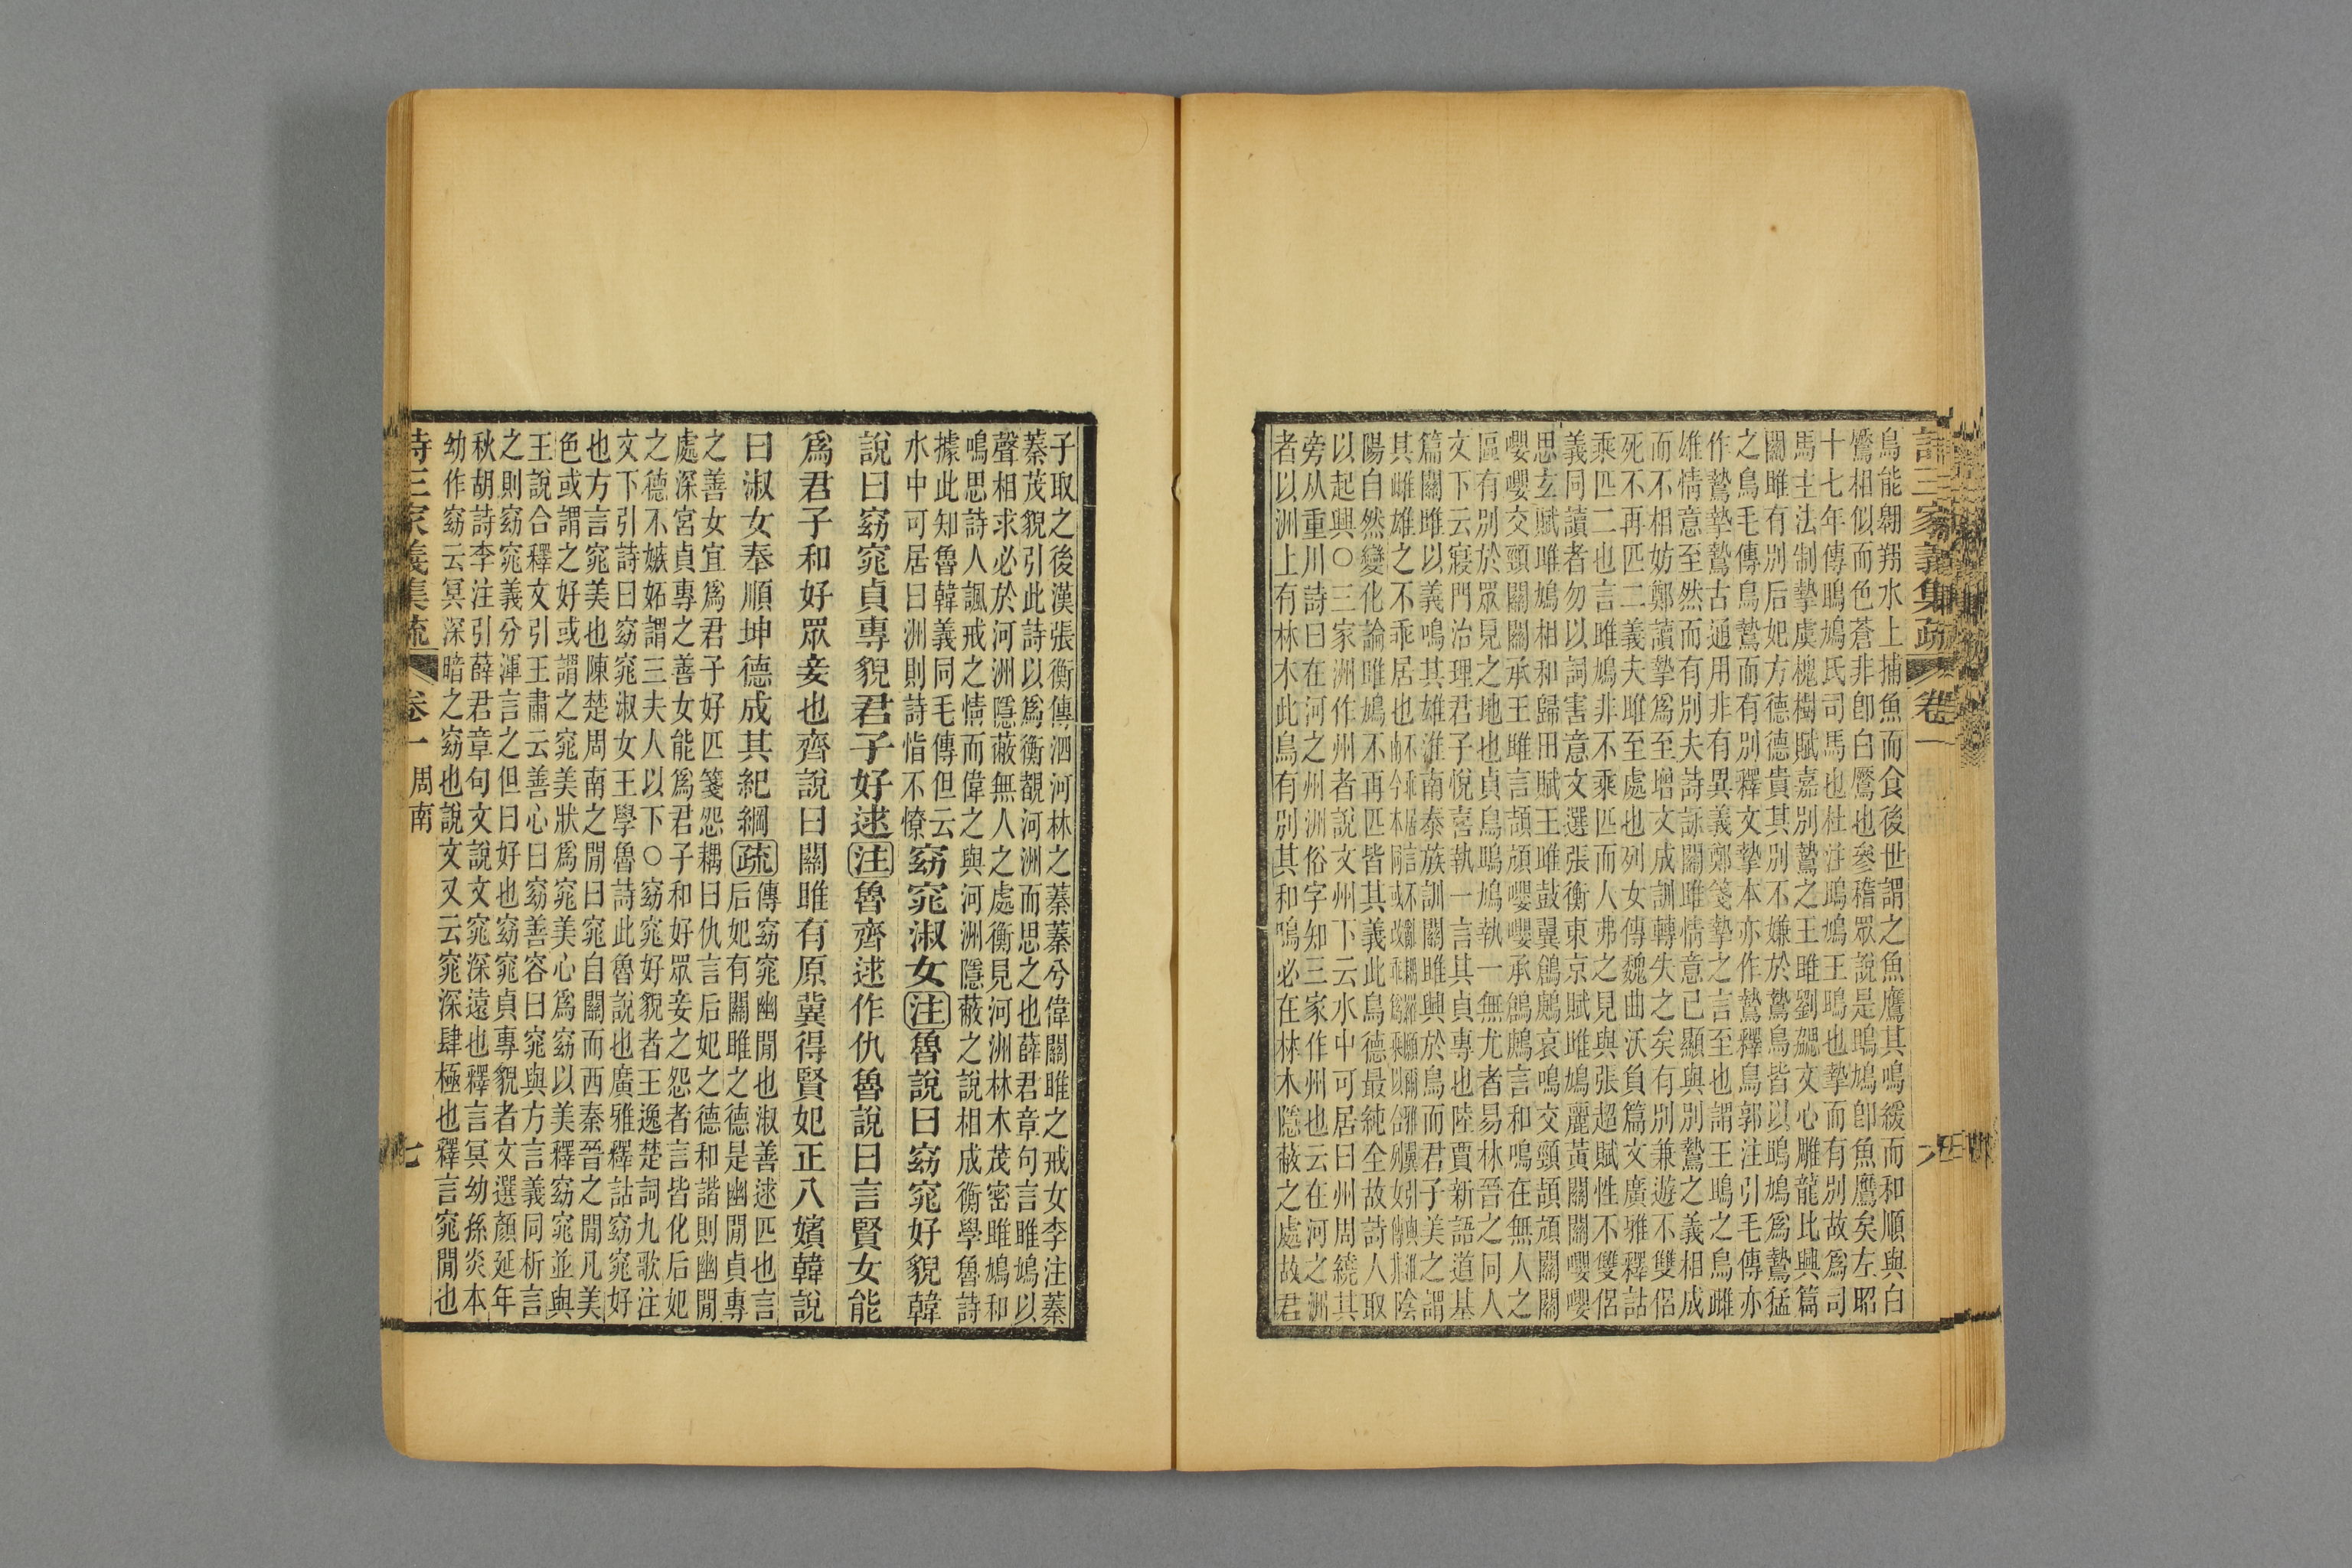 詩三家義集疏 卷一 六
鳥能翱翔水上捕魚而食後世謂之魚鷹其鳴緩而和順與白
鷢相似而色蒼非卽白鷢也參稽眾說是鴡鳩卽魚鷹矣左昭
十七年傳鴡鳩氏司馬也杜注鴡鳩王鴡也摯而有別故爲司
馬主法制摯虞槐樹賦嘉別鷙之王雎劉勰文心雕龍比興篇
關雎有別后妃方德德貴其別不嫌於鷙鳥皆以鴡鳩爲鷙猛
之鳥毛傳鳥鷙而有別釋文摯本亦作鷙釋鳥郭注引毛傳亦
作鷙摯鷙古通用非有異義鄭箋摯之言至也謂王鴡之鳥雌
雄情意至然而有別夫詩詠關雎情意已顯與別鷙之義相成
而不相妨鄭讀摯爲至增文成訓轉失之矣有別兼遊不雙侶
死不再匹二義夫雎至處也列女傳魏曲沃負篇文廣雅釋詁
乘匹二也言雎鳩非不乘匹而人弗之見與張超賦性不雙侶
義同讀者勿以詞害意文選張衡東京賦雎鳩麗黃關關嚶嚶
思玄賦雎鳩相和歸田賦王雎鼓翼鶬鶊哀鳴交頸頡頏關關
嚶嚶交頸關關承王雎言頡頏嚶嚶承鶬鶊言和鳴在無人之
區有別於眾見之地也貞鳥鴡鳩執一無尤者易林晉之同人
文下云寢門治理君子悅喜執一言其貞專也陸賈新語道基
篇關雎以義鳴其雄淮南泰族訓關雎興於鳥而君子美之謂
其雌雄之不乖居也陰
陽自然變化論雎鳩不再匹皆其義此鳥德最純全故詩人取
以起興○三家洲作州者說文州下云水中可居曰州周繞其
旁从重川詩曰在河之州洲俗字知三家作州也云在河之洲
者以洲上有林木此鳥有別其和鳴必在林木隱蔽之處故君
子取之後漢張衡傳泗河林之蓁蓁兮偉關雎之戒女李注蓁
蓁茂貌引此詩以爲衡覩河洲而思之也薛君章句言雎鳩以
聲相求必於河洲隱蔽無人之處衡見河洲林木茂密雎鳩和
鳴思詩人諷戒之情而偉之與河洲隱蔽之說相成衡學魯詩
據此知魯韓義同毛傳但云
水中可居曰洲則詩恉不憭
窈窕淑女注魯說曰窈窕好貌韓
說曰窈窕貞專貌君子好逑注魯齊逑作仇魯說曰言賢女能
爲君子和好眾妾也齊說曰關雎有原冀得賢妃正八嬪韓說
曰淑女奉順坤德成其紀綱疏
傳窈窕幽閒也淑善逑匹也言
后妃有關雎之德是幽閒貞專
之善女宜爲君子好匹箋怨耦曰仇言后妃之德和諧則幽閒
處深宮貞專之善女能爲君子和好眾妾之怨者言皆化后妃
之德不嫉妬謂三夫人以下○窈窕好貌者王逸楚詞九歌注
文下引詩曰窈窕淑女王學魯詩此魯說也廣雅釋詁窈窕好
也方言窕美也陳楚周南之閒曰窕自關而西秦晉之閒凡美
色或謂之好或謂之窕美狀爲窕美心爲窈以美釋窈窕並與
王說合釋文引王肅云善心曰窈善容曰窕與方言義同析言
之則窈窕義分渾言之但曰好也窈窕貞專貌者文選顏延年
秋胡詩李注引薛君章句文說文窕深遠也釋言冥幼孫炎本
幼作窈云冥深暗之窈也說文又云窕深肆極也釋言窕閒也
詩三家義集疏 卷一 周南 七